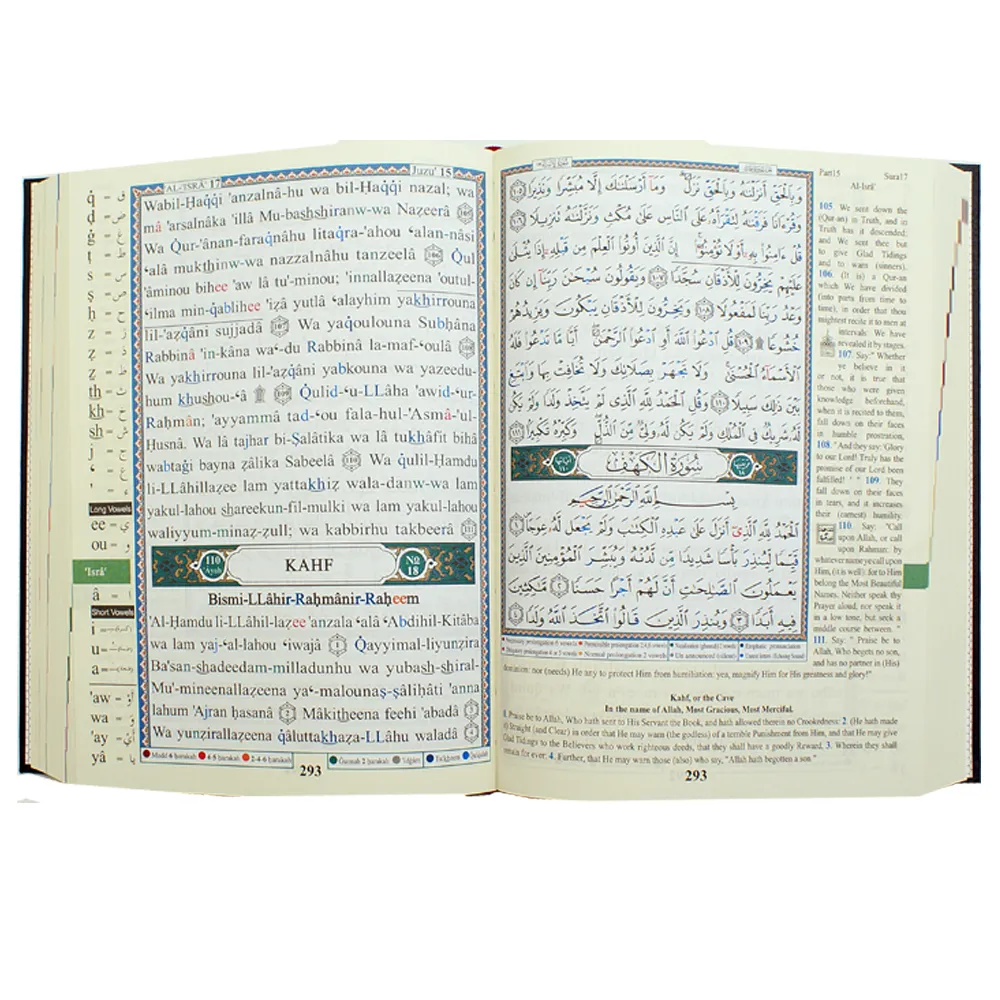 AL-'ISRÂ' 17
Juzu' 15
Wabil-Ḥaqqi 'anzalnâ-hu wa bil-Ḥaqqi nazal; wa
mâ 'arsalnâka 'illâ Mu-bashshiranw-wa Nazeerâ 105
Wa Qur-'ânan-faraqnâhu litaqra-'ahou ʻalan-nâsi
ʻalâ mukthinw-wa nazzalnâhu tanzeelâ 106 Qul
'âminou bihee 'aw lâ tu'-minou; 'innallaẓeena 'outul-
ʻilma min-qablihee 'iẓâ yutlâ ʻalayhim yakhirrouna
lil-'aẓqâni sujjadâ 107 Wa yaqoulouna Subḥâna
Rabbinâ 'in-kâna waʻ-du Rabbinâ la-maf-ʻoulâ 108
Wa yakhirrouna lil-'aẓqâni yabkouna wa yazeedu-
hum khushou-ʻâ ۩ 109 Qulid-ʻu-LLâha 'awid-ʻur-
Raḥmân; 'ayyammâ tad-ʻou fala-hul-'Asmâ-'ul-
Ḥusnâ. Wa lâ tajhar bi-Ṣalâtika wa lâ tukhâfit bihâ
wabtaġi bayna ẓâlika Sabeelâ 110 Wa qulil-Ḥamdu
li-LLâhillaẓee lam yattakhiẓ wala-danw-wa lam
yakul-lahou shareekun-fil-mulki wa lam yakul-lahou
waliyyum-minaẓ-ẓull; wa kabbirhu takbeerâ 111
110 Ayah
KAHF
No 18
Bismi-LLâhir-Raḥmânir-Raḥeem
'Al-Ḥamdu li-LLâhil-laẓee 'anzala ʻalâ ʻAbdihil-Kitâba
wa lam yaj-ʻal-lahou ʻiwajâ 1 Qayyimal-liyunẓira
Ba'san-shadeedam-milladunhu wa yubash-shiral-
Mu'-mineenallaẓeena yaʻ-malounaṣ-ṣâliḥâti 'anna
lahum 'Ajran ḥasanâ 2 Mâkitheena feehi 'abadâ 3
Wa yunẓirallaẓeena qâluttakhaẓa-LLâhu waladâ 4
Madd 6 ḥarakah 4-5 ḥarakah 2-4-6 ḥarakah Ġunnah 2 ḥarakah 'Idġâm Tafkheem Qalqalah
293
q = ق
ḍ = ض
ġ = غ
ṭ = ط
s = س
ṣ = ص
ḥ = ح
z = ز
ẓ = ذ
th = ث
kh = خ
sh = ش
j = ج
ʻ = ع
' = ء
Long Vowels
ee = ي
ou = و
'Isrâ'
â = ا
Short Vowels
i =
u =
a =
'aw = أَو
wa = وَ
'ay = أَي
yâ = يا
وَبِالْحَقِّ أَنزَلْنَاهُ وَبِالْحَقِّ نَزَلَ ۗ وَمَا أَرْسَلْنَاكَ إِلَّا مُبَشِّرًا وَنَذِيرًا ١٠٥
وَقُرْءَانًا فَرَقْنَاهُ لِتَقْرَأَهُ عَلَى النَّاسِ عَلَىٰ مُكْثٍ وَنَزَّلْنَاهُ تَنزِيلًا ١٠٦
قُلْ ءَامِنُوا بِهِ أَوْ لَا تُؤْمِنُوا ۚ إِنَّ الَّذِينَ أُوتُوا الْعِلْمَ مِن قَبْلِهِ إِذَا يُتْلَىٰ
عَلَيْهِمْ يَخِرُّونَ لِلْأَذْقَانِ سُجَّدًا ١٠٧ وَيَقُولُونَ سُبْحَانَ رَبِّنَا إِن كَانَ
وَعْدُ رَبِّنَا لَمَفْعُولًا ١٠٨ وَيَخِرُّونَ لِلْأَذْقَانِ يَبْكُونَ وَيَزِيدُهُمْ
خُشُوعًا ۩ ١٠٩ قُلِ ادْعُوا اللَّهَ أَوِ ادْعُوا الرَّحْمَٰنَ ۖ أَيًّا مَّا تَدْعُوا فَلَهُ
الْأَسْمَاءُ الْحُسْنَىٰ ۚ وَلَا تَجْهَرْ بِصَلَاتِكَ وَلَا تُخَافِتْ بِهَا وَابْتَغِ
بَيْنَ ذَٰلِكَ سَبِيلًا ١١٠ وَقُلِ الْحَمْدُ لِلَّهِ الَّذِي لَمْ يَتَّخِذْ وَلَدًا وَلَمْ يَكُن
لَّهُ شَرِيكٌ فِي الْمُلْكِ وَلَمْ يَكُن لَّهُ وَلِيٌّ مِّنَ الذُّلِّ ۖ وَكَبِّرْهُ تَكْبِيرًا ١١١
سُورَةُ الْكَهْفِ
بِسْمِ اللَّهِ الرَّحْمَٰنِ الرَّحِيمِ
الْحَمْدُ لِلَّهِ الَّذِي أَنزَلَ عَلَىٰ عَبْدِهِ الْكِتَابَ وَلَمْ يَجْعَل لَّهُ عِوَجًا ١
قَيِّمًا لِّيُنذِرَ بَأْسًا شَدِيدًا مِّن لَّدُنْهُ وَيُبَشِّرَ الْمُؤْمِنِينَ الَّذِينَ
يَعْمَلُونَ الصَّالِحَاتِ أَنَّ لَهُمْ أَجْرًا حَسَنًا ٢ مَّاكِثِينَ
فِيهِ أَبَدًا ٣ وَيُنذِرَ الَّذِينَ قَالُوا اتَّخَذَ اللَّهُ وَلَدًا ٤
Part15 Sura17
Al-Isrâ'
105. We sent down the
(Qur-an) in Truth, and in
Truth has it descended;
and We sent thee but
to give Glad Tidings
and to warn (sinners).
106. (It is) a Qur-an
which We have divided
(into parts from time to
time), in order that thou
mightest recite it to men at
intervals: We have
revealed it by stages.
107. Say:" Whether
ye believe in it
or not, it is true that
those who were given
knowledge beforehand,
when it is recited to them,
fall down on their faces
in humble prostration,
108. "And they say:'Glory
to our Lord! Truly has the
promise of our Lord been
fulfilled! ' " 109. They
fall down on their faces
in tears, and it increases
their (earnest) humility.
110. Say: "Call
upon Allah, or call
upon Rahman: by
whatever name ye call upon
Him, (it is well): for to Him
belong the Most Beautiful
Names. Neither speak thy
Prayer aloud, nor speak it
in a low tone, but seek a
middle course between. "
111. Say: " Praise be to
Allah, Who begets no son,
and has no partner in (His)
dominion: nor (needs) He any to protect Him from humiliation: yea, magnify Him for His greatness and glory!"
Kahf, or the Cave
In the name of Allah, Most Gracious, Most Merciful.
1. Praise be to Allah, Who hath sent to His Servant the Book, and hath allowed therein no Crookedness: 2. (He hath made
it) Straight (and Clear) in order that He may warn (the godless) of a terrible Punishment from Him, and that He may give
Glad Tidings to the Believers who work righteous deeds, that they shall have a goodly Reward, 3. Wherein they shall
remain for ever: 4. Further, that He may warn those (also) who say, "Allah hath begotten a son "
293